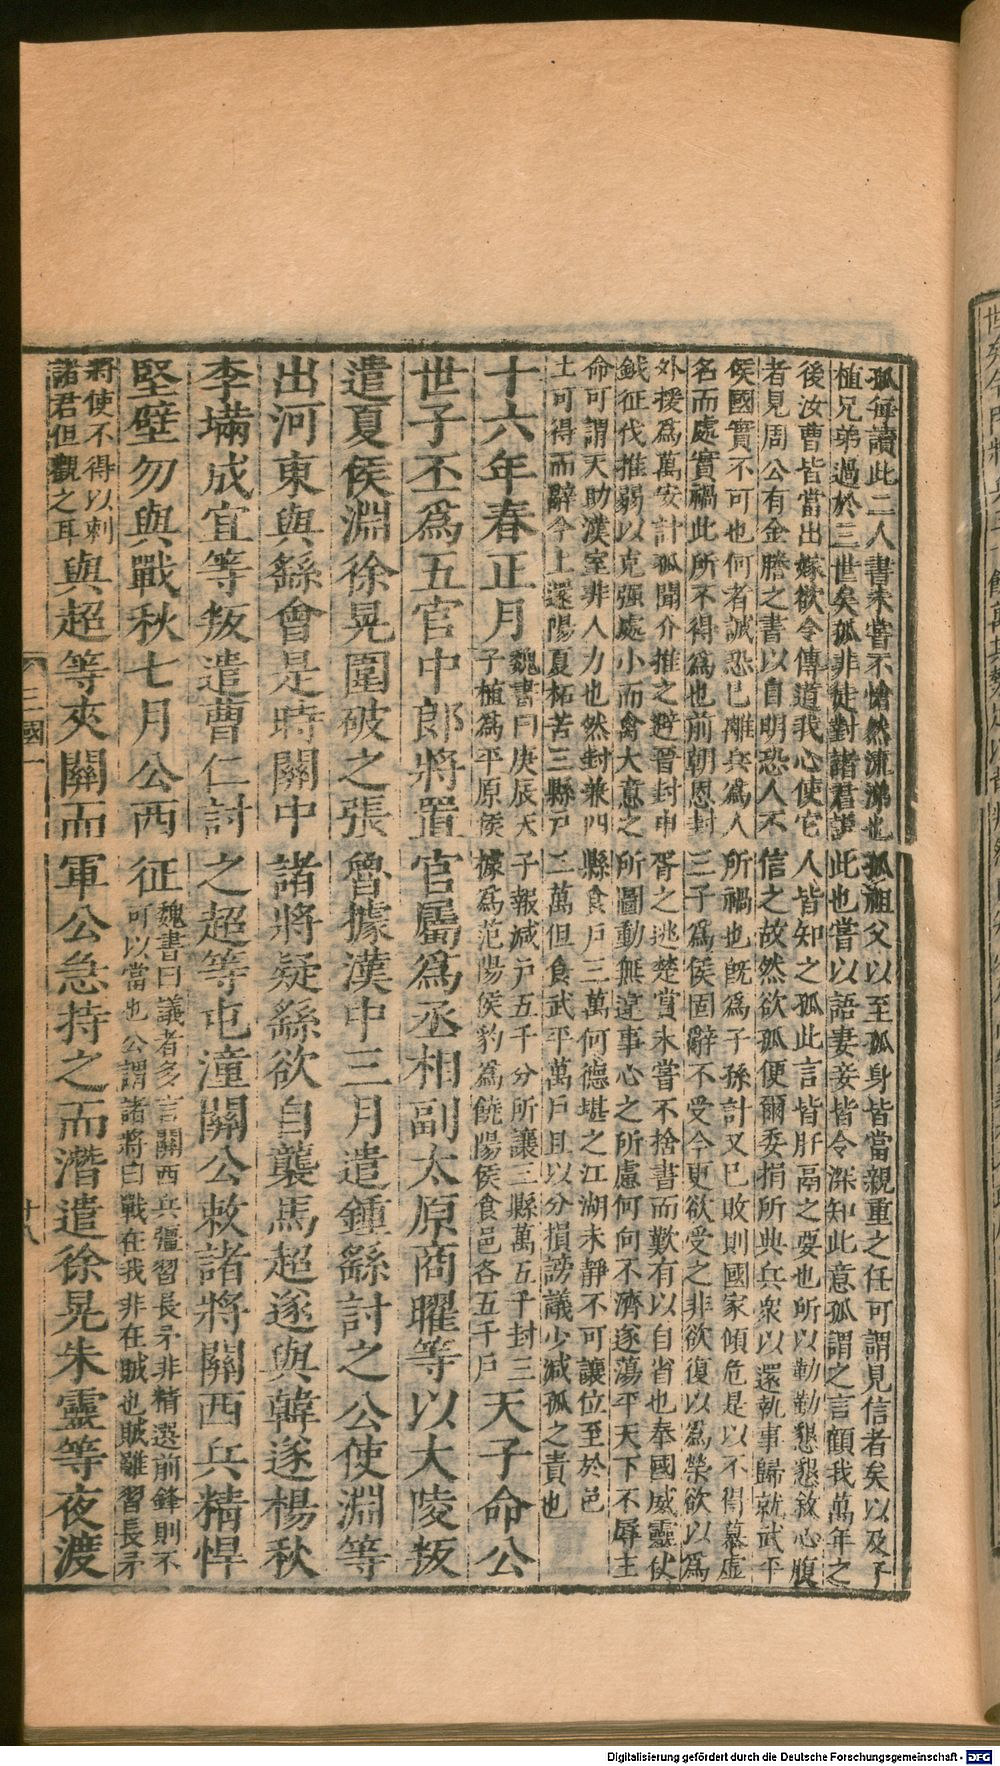 孤每讀此二人書未嘗不愴然流涕也孤祖父以至孤身皆當親重之任可謂見信者矣以及子
植兄弟過於三世矣孤非徒對諸君說此也嘗以語妻妾皆令深知此意孤謂之言顧我萬年之
後汝曹皆當出嫁欲令傳道我心使它人皆知之孤此言皆肝鬲之要也所以勤勤懇懇敘心腹
者見周公有金縢之書以自明恐人不信之故然欲孤便爾委捐所典兵衆以還執事歸就武平
侯國實不可也何者誠恐已離兵爲人所禍也旣爲子孫計又已敗則國家傾危是以不得慕虛
名而處實禍此所不得爲也前朝恩封三子爲侯固辭不受今更欲受之非欲復以爲榮欲以爲
外援爲萬安計孤聞介推之避晉封申胥之逃楚賞未嘗不捨書而歎有以自省也奉國威靈仗
鉞征伐推弱以克强處小而禽大意之所圖動無違事心之所慮何向不濟遂蕩平天下不辱主
命可謂天助漢室非人力也然封兼四縣食戶三萬何德堪之江湖未靜不可讓位至於邑
土可得而辭今上還陽夏柘苦三縣戶二萬但食武平萬戶且以分損謗議少減孤之責也
十六年春正月
魏書曰庚辰天子報減戶五千分所讓三縣萬五千封三
子植爲平原侯據爲范陽侯豹爲饒陽侯食邑各五千戶
天子命公
世子丕爲五官中郎將置官屬爲丞相副太原商曜等以大陵叛
遣夏侯淵徐晃圍破之張魯據漢中三月遣鍾繇討之公使淵等
出河東與繇會是時關中諸將疑繇欲自襲馬超遂與韓遂楊秋
李堪成宜等叛遣曹仁討之超等屯潼關公敕諸將關西兵精悍
堅壁勿與戰秋七月公西征
魏書曰議者多言關西兵彊習長矛非精選前鋒則不
可以當也公謂諸將曰戰在我非在賊也賊雖習長矛
將使不得以刺
諸君但觀之耳
與超等夾關而軍公急持之而潛遣徐晃朱靈等夜渡
三國一
廿八
Digitalisierung gefördert durch die Deutsche Forschungsgemeinschaft - DFG